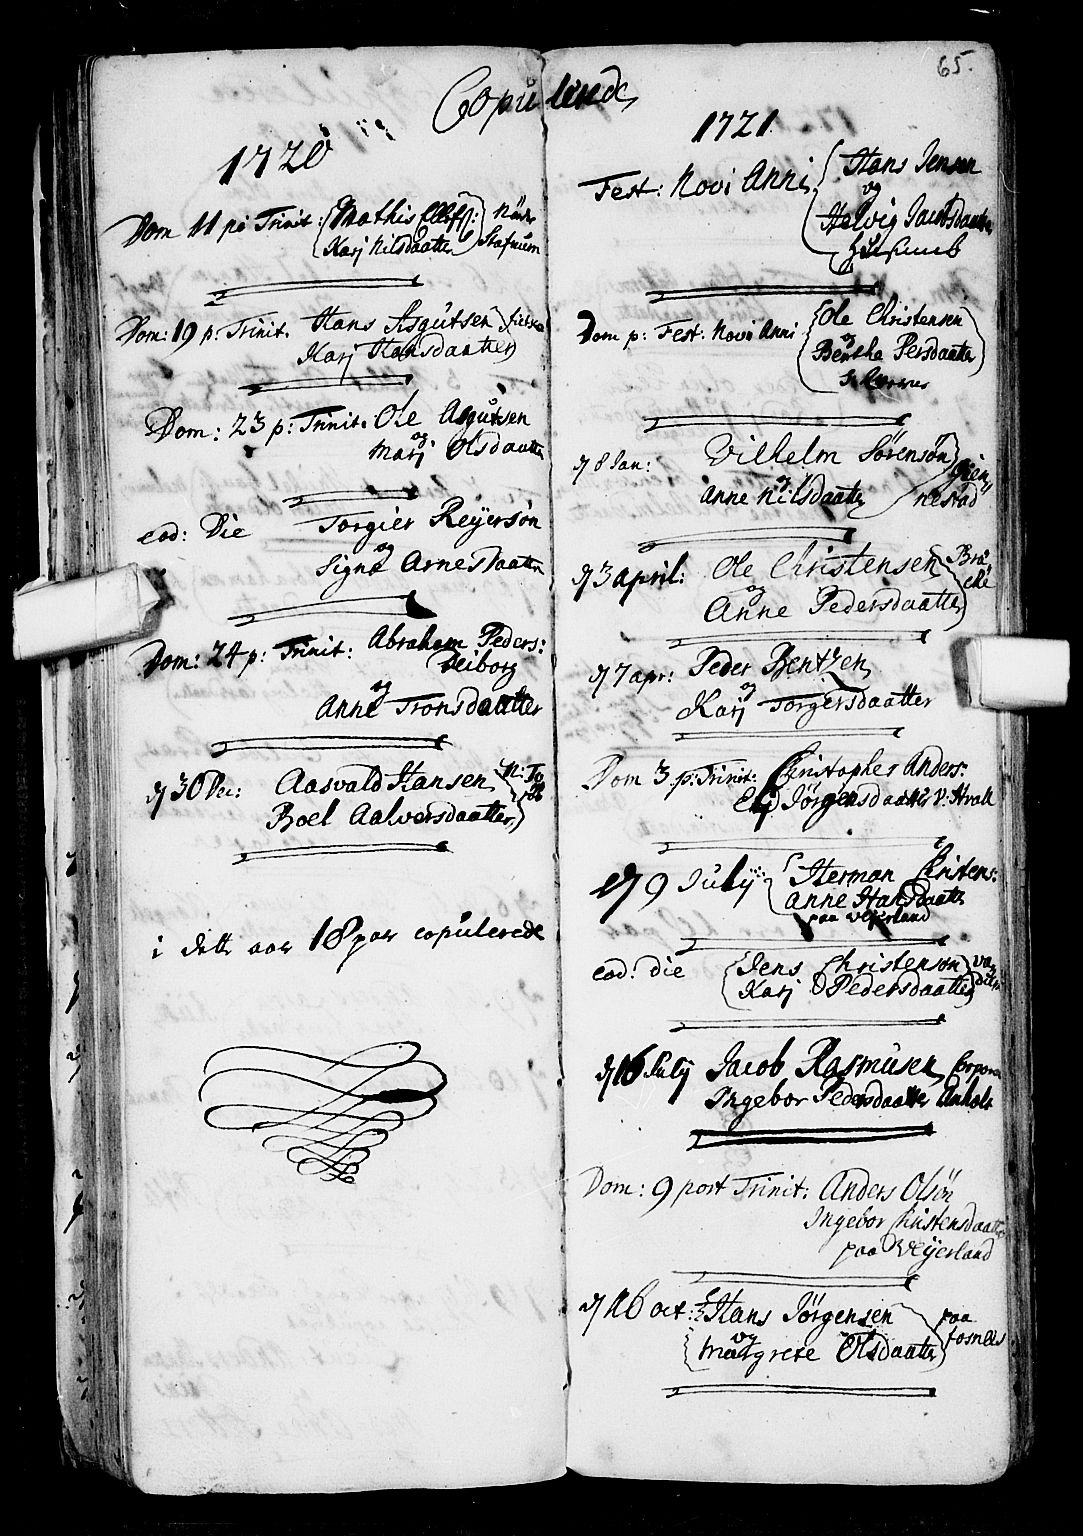 65.
Copulerede
1720
Dom 11 p: Trinit: Mathis Ellefs:
Karj Nilsdaatter
Dom: 19 p: Trinit. Hans Asgutsen
Karj Hansdaatter
Dom: 23 p: Trinit. Ole Asgutsen
og
Marj Olsdaatter
eod: Die Torgier Reyersøn
og
Signe Arnesdaatter
Dom: 24 p: Trinit: Abraham Peders:
Seiborg
og
Anne Tronsdaatter
d 30 Dec: Aasvald Hansen
Boel Aalversdaatter
i dette aar 18 par copulerede
1721
Fest: Novi Anni Hans Jensen
og
Helvig
Dom p: Fest: Novi Anni Ole Christensen
og
Bertha Persdaatter
d 8 Jan: Vilhelm Sörensön
og
Anne Nilsdaatter
d 3 april: Ole Christensen
og
Anne Pedersdaatter
d 7 apr: Peder Bentzen
og
Karj Torgersdaatter
Dom 3 p: Trinit: Christopher Anders:
Jörgensdaatter
d 9 July Herman Christens:
Anne Hansdaatter
paa Veyerland
eod: die Jens Christensøn
Karj Pedersdaatter
d 16 July Jacob Rasmusen
Ingebor Pedersdaatter Anholt
Dom: 9 post Trinit: Anders Olsön
Ingebor Christensdaatter
paa Veyerland
d 26 oct: Hans Jörgensen paa
og
Margrete Olsdaatter fosnees